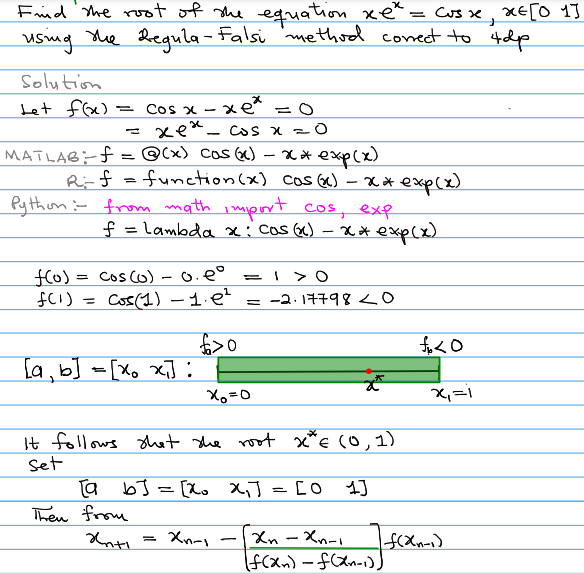 Find the root of the equation xeˣ = cos x, x∈[0 1]
using the Regula-Falsi method correct to 4dp
Solution
Let f(x) = cos x - xeˣ = 0
= xeˣ - cos x = 0
MATLAB:- f = @(x) cos(x) - x*exp(x)
R:- f = function(x) cos(x) - x*exp(x)
Python:- from math import cos, exp
f = lambda x: cos(x) - x*exp(x)
f(0) = cos(0) - 0.e⁰ = 1 > 0
f(1) = cos(1) - 1.e¹ = -2.17798 < 0
fₐ>0 f_b<0
[a, b] = [x₀ x₁] :
x₀=0 x* x₁=1
It follows that the root x* ∈ (0, 1)
Set
[a b] = [x₀ x₁] = [0 1]
Then from
xₙ₊₁ = xₙ₋₁ - [(xₙ - xₙ₋₁)/(f(xₙ) - f(xₙ₋₁))] f(xₙ₋₁)